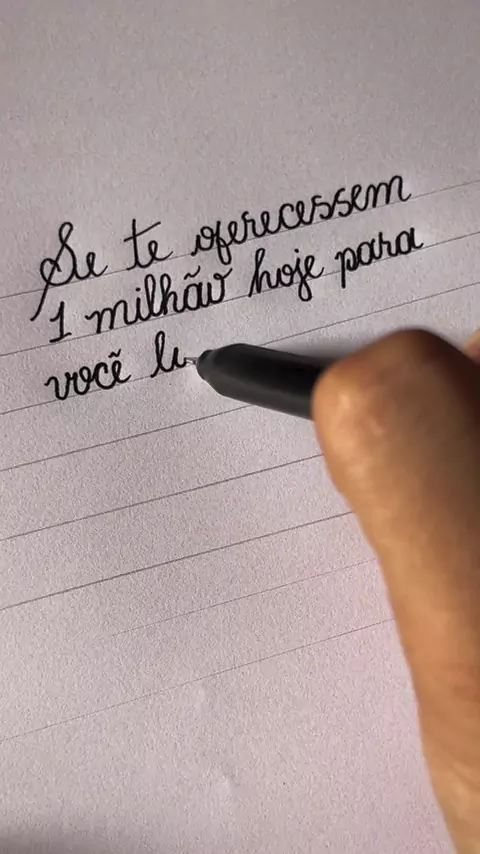 Se te oferecessem
1 milhão hoje para
você le